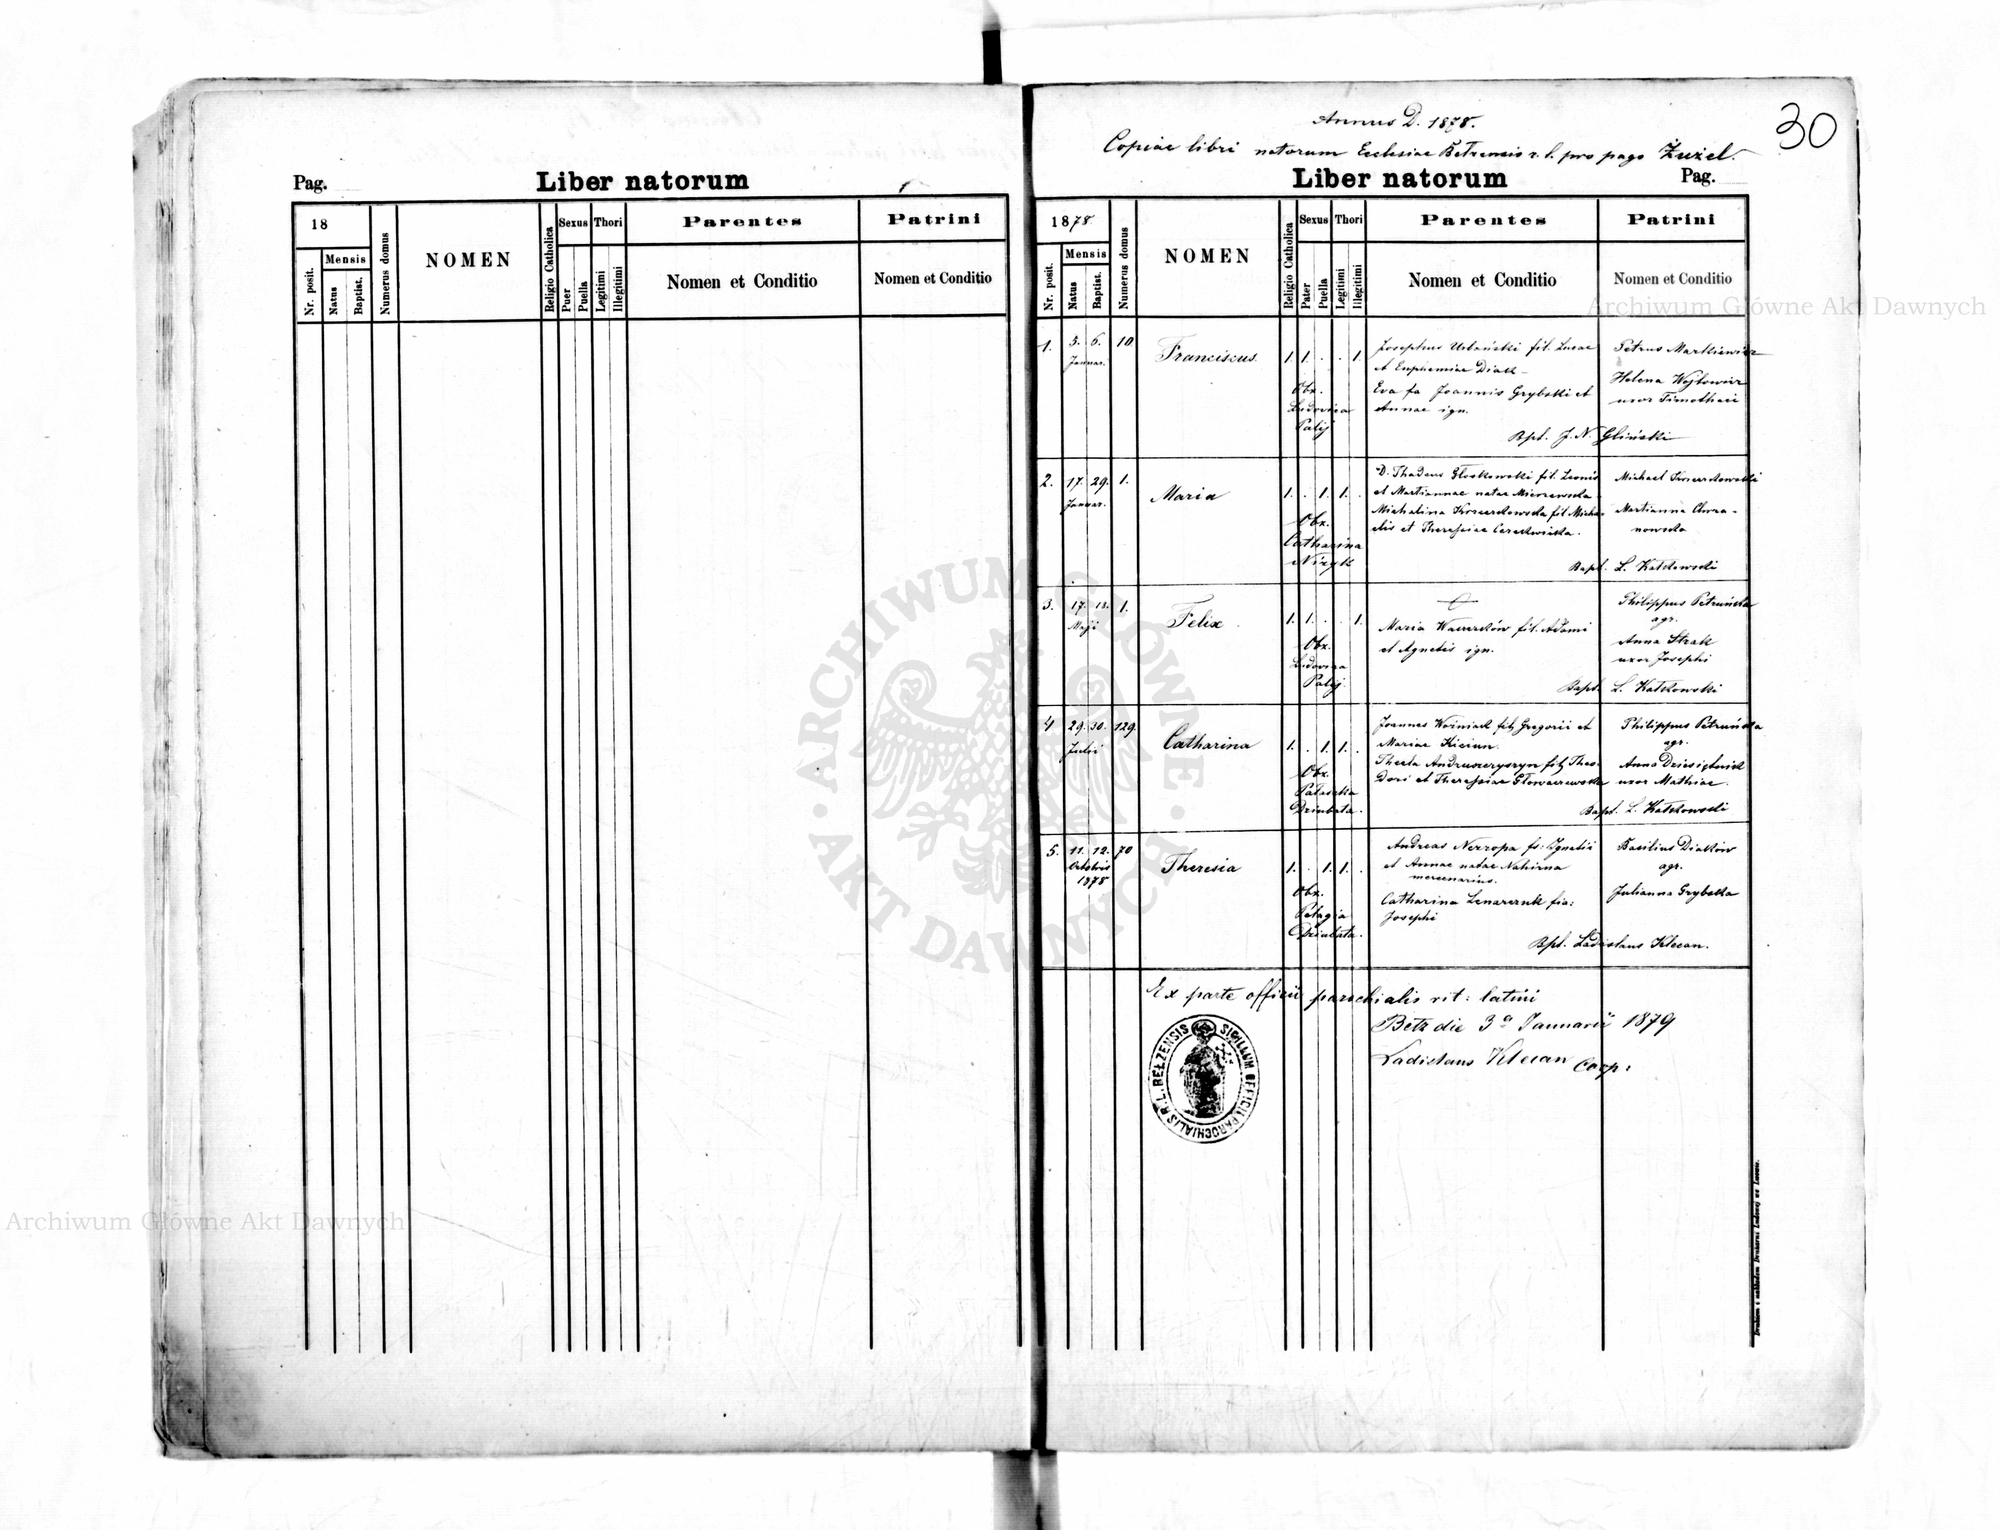 Pag.
Liber natorum
18
Mensis
Nr. posit.
Natus
Baptist.
Numerus domus
NOMEN
Religio Catholica
Sexus
Puer
Puella
Thori
Legitimi
Illegitimi
Parentes
Nomen et Conditio
Patrini
Nomen et Conditio
30
Annus D. 1878.
Copiae libri natorum Ecclesiae Bełzensis r. l. pro pago Żużel.
Liber natorum
Pag.
1878
Mensis
Nr. posit.
Natus
Baptist.
Numerus domus
NOMEN
Religio Catholica
Sexus
Pater
Puella
Thori
Legitimi
Illegitimi
Parentes
Nomen et Conditio
Patrini
Nomen et Conditio
1. 5. 6. 10
Januar.
Franciscus
1. 1. . . 1.
Obx.
Ludovica
Palij
Josephus Urbański fil. Lucae
et Euphemiae Diak
Eva fa Joannis Grybski et
Annae ign.
Petrus Markiewicz
Helena Wojtowicz
uxor Timothaei
Bpt. J. N. Gliński
2. 17. 29. 1.
Januar.
Maria
1. . 1. 1. .
Obx.
Catharina
Nizyk
D. Thadeus Głoskowski fil. Leonis
et Martiannae natae
Michalina fil. Micha-
elis et Theresiae
Michael
Martianna Chrza-
nowska
Bapt. L. Kałkowski
3. 17. 18. 1.
Maji
Felix
1. 1. . . 1.
Obx.
Ludovica
Palij
Maria fil. Adami
et Agnetis ign.
Philippus Petruńska
agr.
Anna Strak
uxor Josephi
Bapt. L. Kałkowski
4 29. 30. 129.
Julii
Catharina
1. . 1. 1. .
Obx.
Palaszka
Dziubata.
Joannes Woźniak fil. Gregorii et
Mariae Kiciun.
Thecla Andruszczyszyn fil. Theo-
dori et Theresiae
Philippus Petruńska
agr.
Anna Dziesiętnik
uxor Mathiae.
Bapt. L. Kałkowski
5. 11. 12. 70
Octobris
1878
Theresia
1. . 1. 1. .
Obx.
Pelagia
Dziubata.
Andreas fs: Ignatii
et Annae natae Nahirna
mercenarius.
Catharina Lenarczuk fia:
Josephi
Basilius Diaków
agr.
Julianna Grybska
Bpt. Ladislaus Klecan.
Ex parte officii parochialis rit: latini
Bełz die 3ª Januarii 1879
Ladislaus Klecan Coop:
SIGILLUM OFFICII PAROCHIALIS R. L. BEŁZENSIS
Drukiem i nakładem Drukarni Ludowej we Lwowie.
ARCHIWUM GŁÓWNE AKT DAWNYCH
Archiwum Główne Akt Dawnych
Archiwum Główne Akt Dawnych